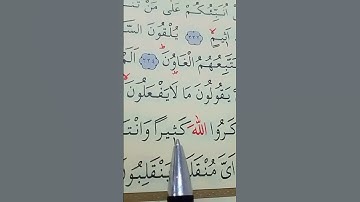 نَبِّئُكُمْ عَلٰى مَنْ تَنَ
اَثِيمٍ ﴿٢٢٢﴾ يُلْقُونَ السَّ
يَتَّبِعُهُمُ الْغَاوُنَ ﴿٢٢٤﴾ اَلَمْ
يَقُولُونَ مَا لَا يَفْعَلُونَ
كَرُوا اللّٰهَ كَثِيراً وَانْتَ
اَىَّ مُنْقَلَبٍ يَنْقَلِبُونَ